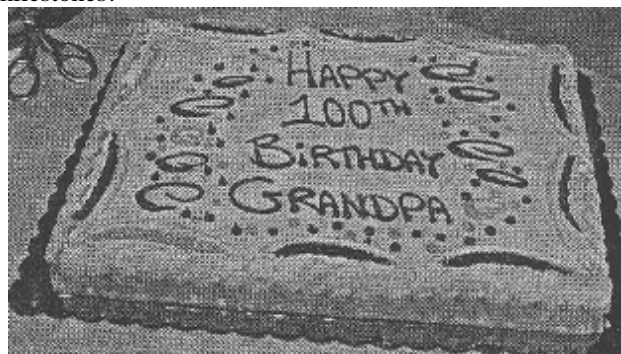 HAPPY
100TH
BiRTHDAY
GRANDPA